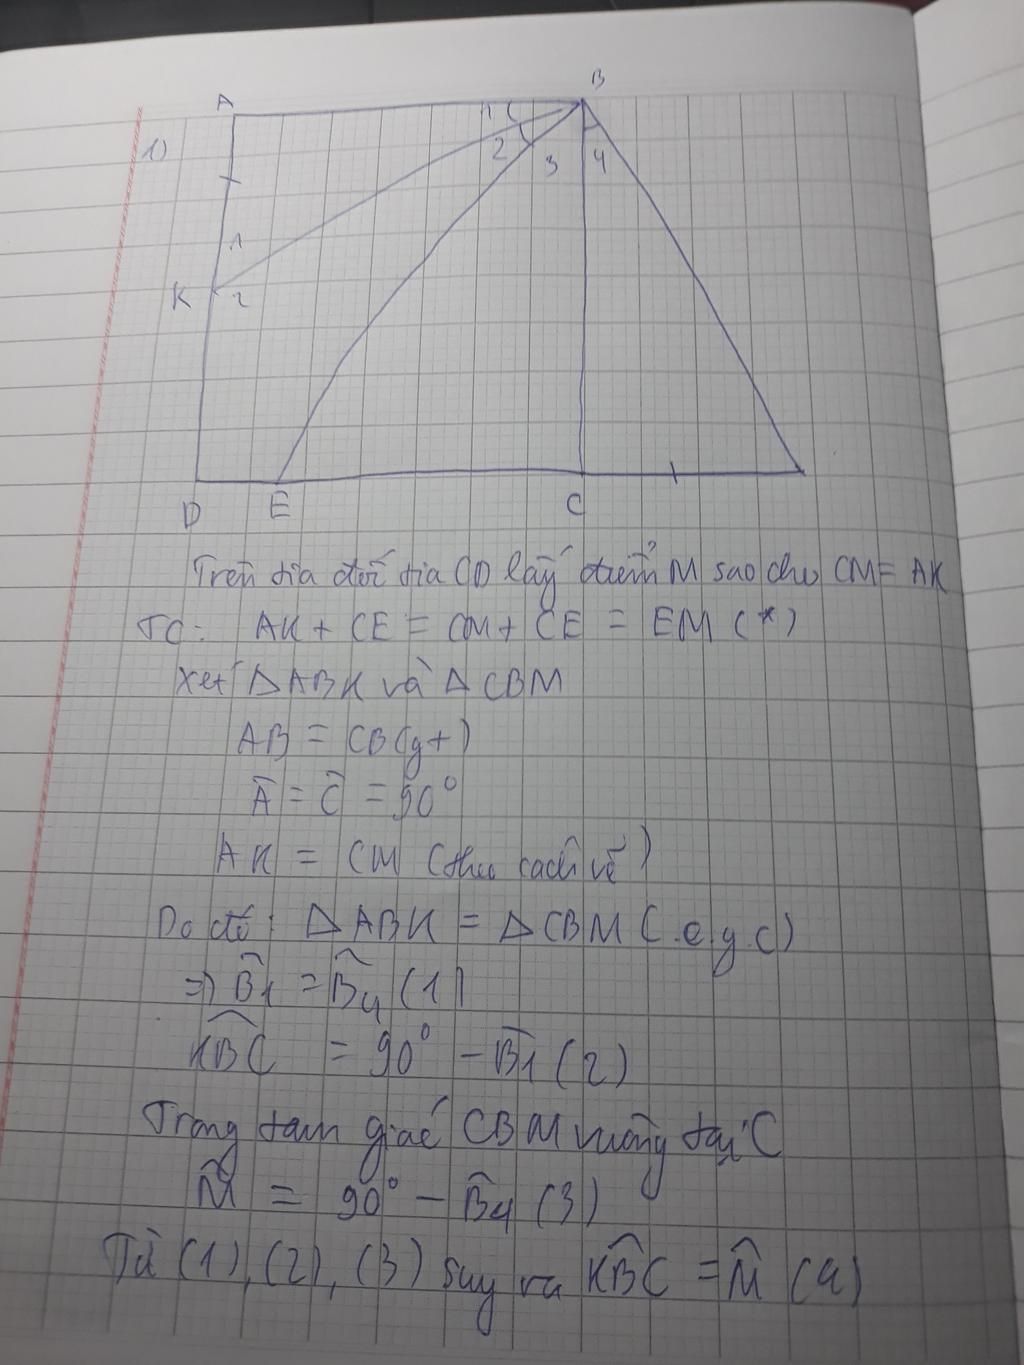 1)
A
B
1
2
3
4
1
K
2
D
E
C
Trên tia đối tia CD lấy điểm M sao cho CM = AK
TC: AK + CE = CM + CE = EM (*)
Xét ΔABK và ΔCBM
AB = CB (gt)
Â = Ĉ = 90°
AK = CM (theo cách vẽ)
Do đó: ΔABK = ΔCBM (.c.g.c)
=> B̂1 = B̂4 (1)
K̂BC = 90° - B̂1 (2)
Trong tam giác CBM vuông tại C
M̂ = 90° - B̂4 (3)
Từ (1), (2), (3) suy ra KB̂C = M̂ (4)